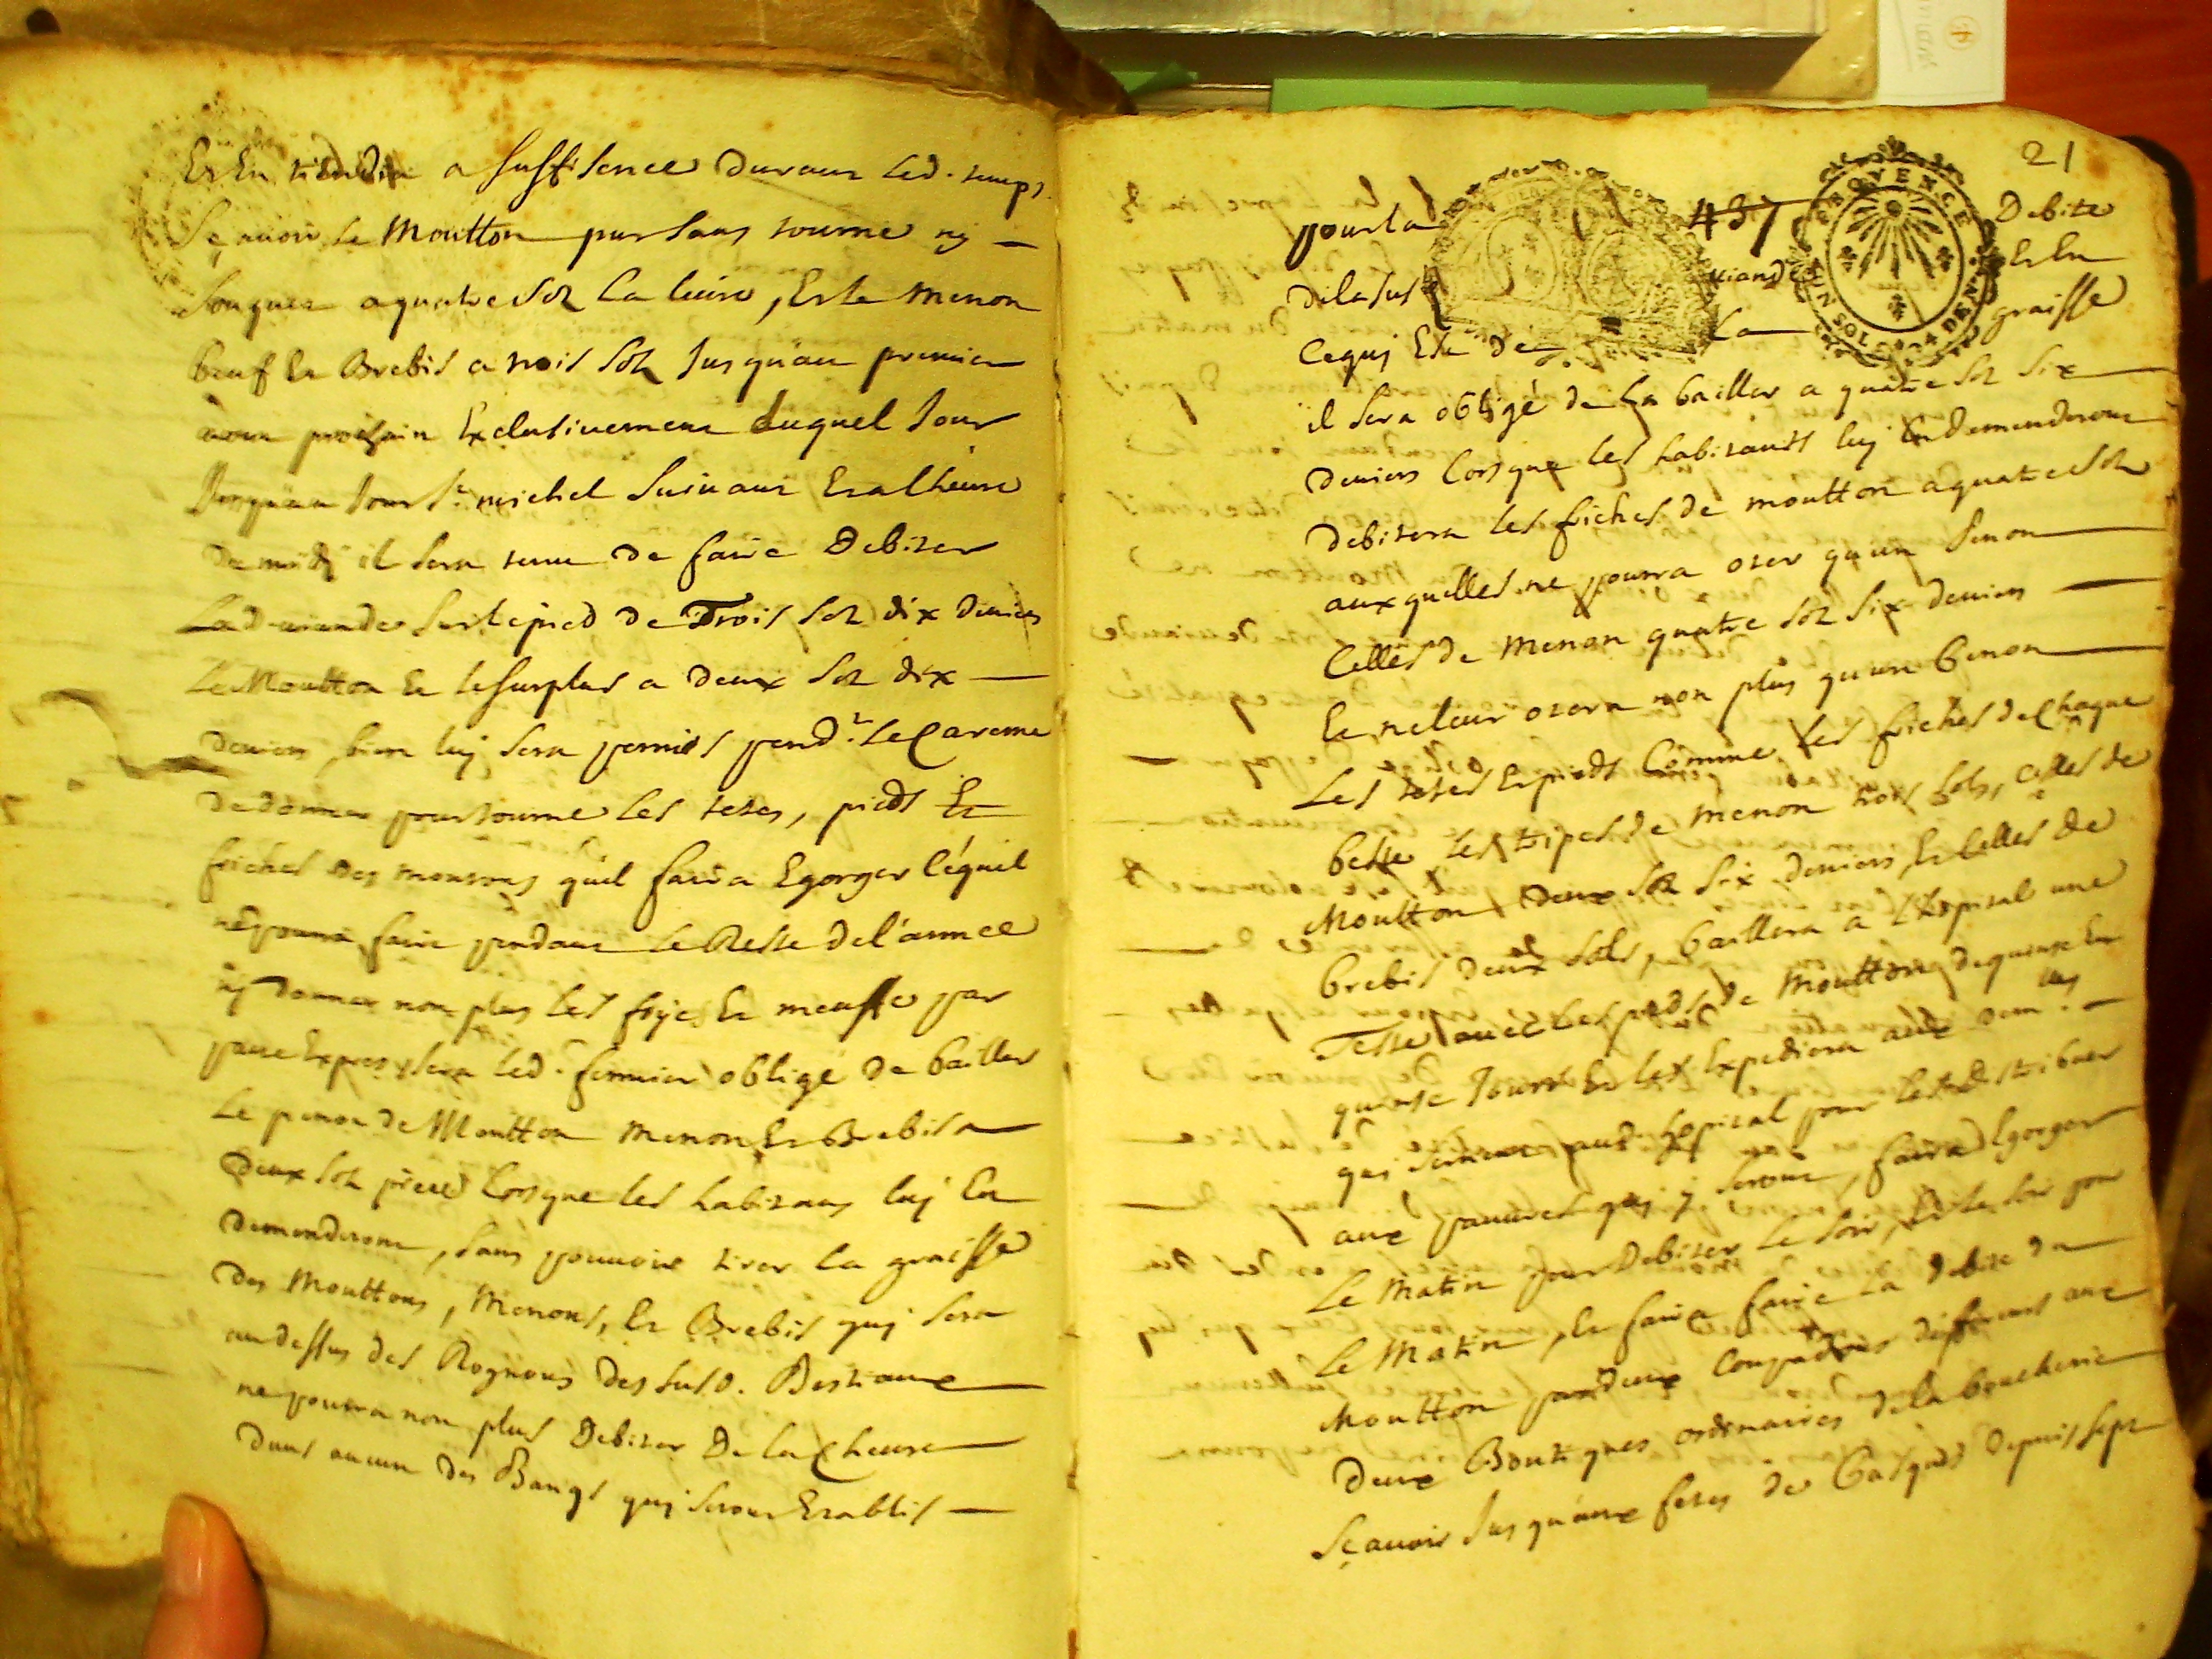 Et En tiendra a suffisence durant led. temps
Sçauoir le Moutton pur sans tourne ny —
a quatre sols la liure, Et le menon
beuf Et Brebis a trois sols Jusqu'au premier
aoux prochain Exclusivement duquel Jour
Jusqu'au Jour St. michel suiuant Et a l'heure
de midi il sera tenu de faire Debiter
Lad. viande sur le pied de Trois sols dix deniers
Le Moutton Et le surplus a deux sols dix —
deniers, bien luy sera permis pendt. le Careme
de donner pour tourne les testes, pieds Et
friches des moutons qu'il faira Egorger Cé quil
ne pourra faire pendant le Reste de l'année
ny donner non plus les foyes Et meusse par
pacte Expres, sera led. fermier obligé de bailler
Le penon de Moutton menon Et Brebis a
deux sols piece Lorsque les habitans luy En
demanderont, sans pouuoir tirer la graisse
des Mouttons, Menons, Et Brebis quj sera
au dessus des Rognons des susd. Bestiaux
ne pourra non plus Debiter De la Cheure
dans aucun des Bangs quj seront Etablis —
21
pour la 437 Debite
de la sus viande Et En
Ce quj Est de La graisse
il sera obligé de La bailler a quatre sols six
deniers Lorsque les habitants luj En demanderont
debitera les friches de moutton a quatre sols
auxquelles ne pourra oter qu'un penon
Celles de menon quatre sols six deniers —
Et ne leur otera non plus qu'un penon
Les testes Et pieds Comme les friches de Chaque
beste les tripes de menon trois sols, celles de
Moutton deux sols six deniers Et Celles de
brebis deux sols, baillera a L'hopital une
Teste auec les pieds de Moutton de quinse En
quinse Jours Et les Expediera aux dem. les
quj seruent aud. hopital pour les distribuer
aux pauures quj y seront, faira Egorger
Le Matin pour Debiter le soir, Et le soir pour
Le Matin, Et faira faire la debite du
Moutton par deux Coupadous differents aux
deux Boutiques ordinaires de la boucherie
Sçauoir Jusqu'aux festes de Pasques depuis sept
PROVENCE
UN SOL 4 DEN